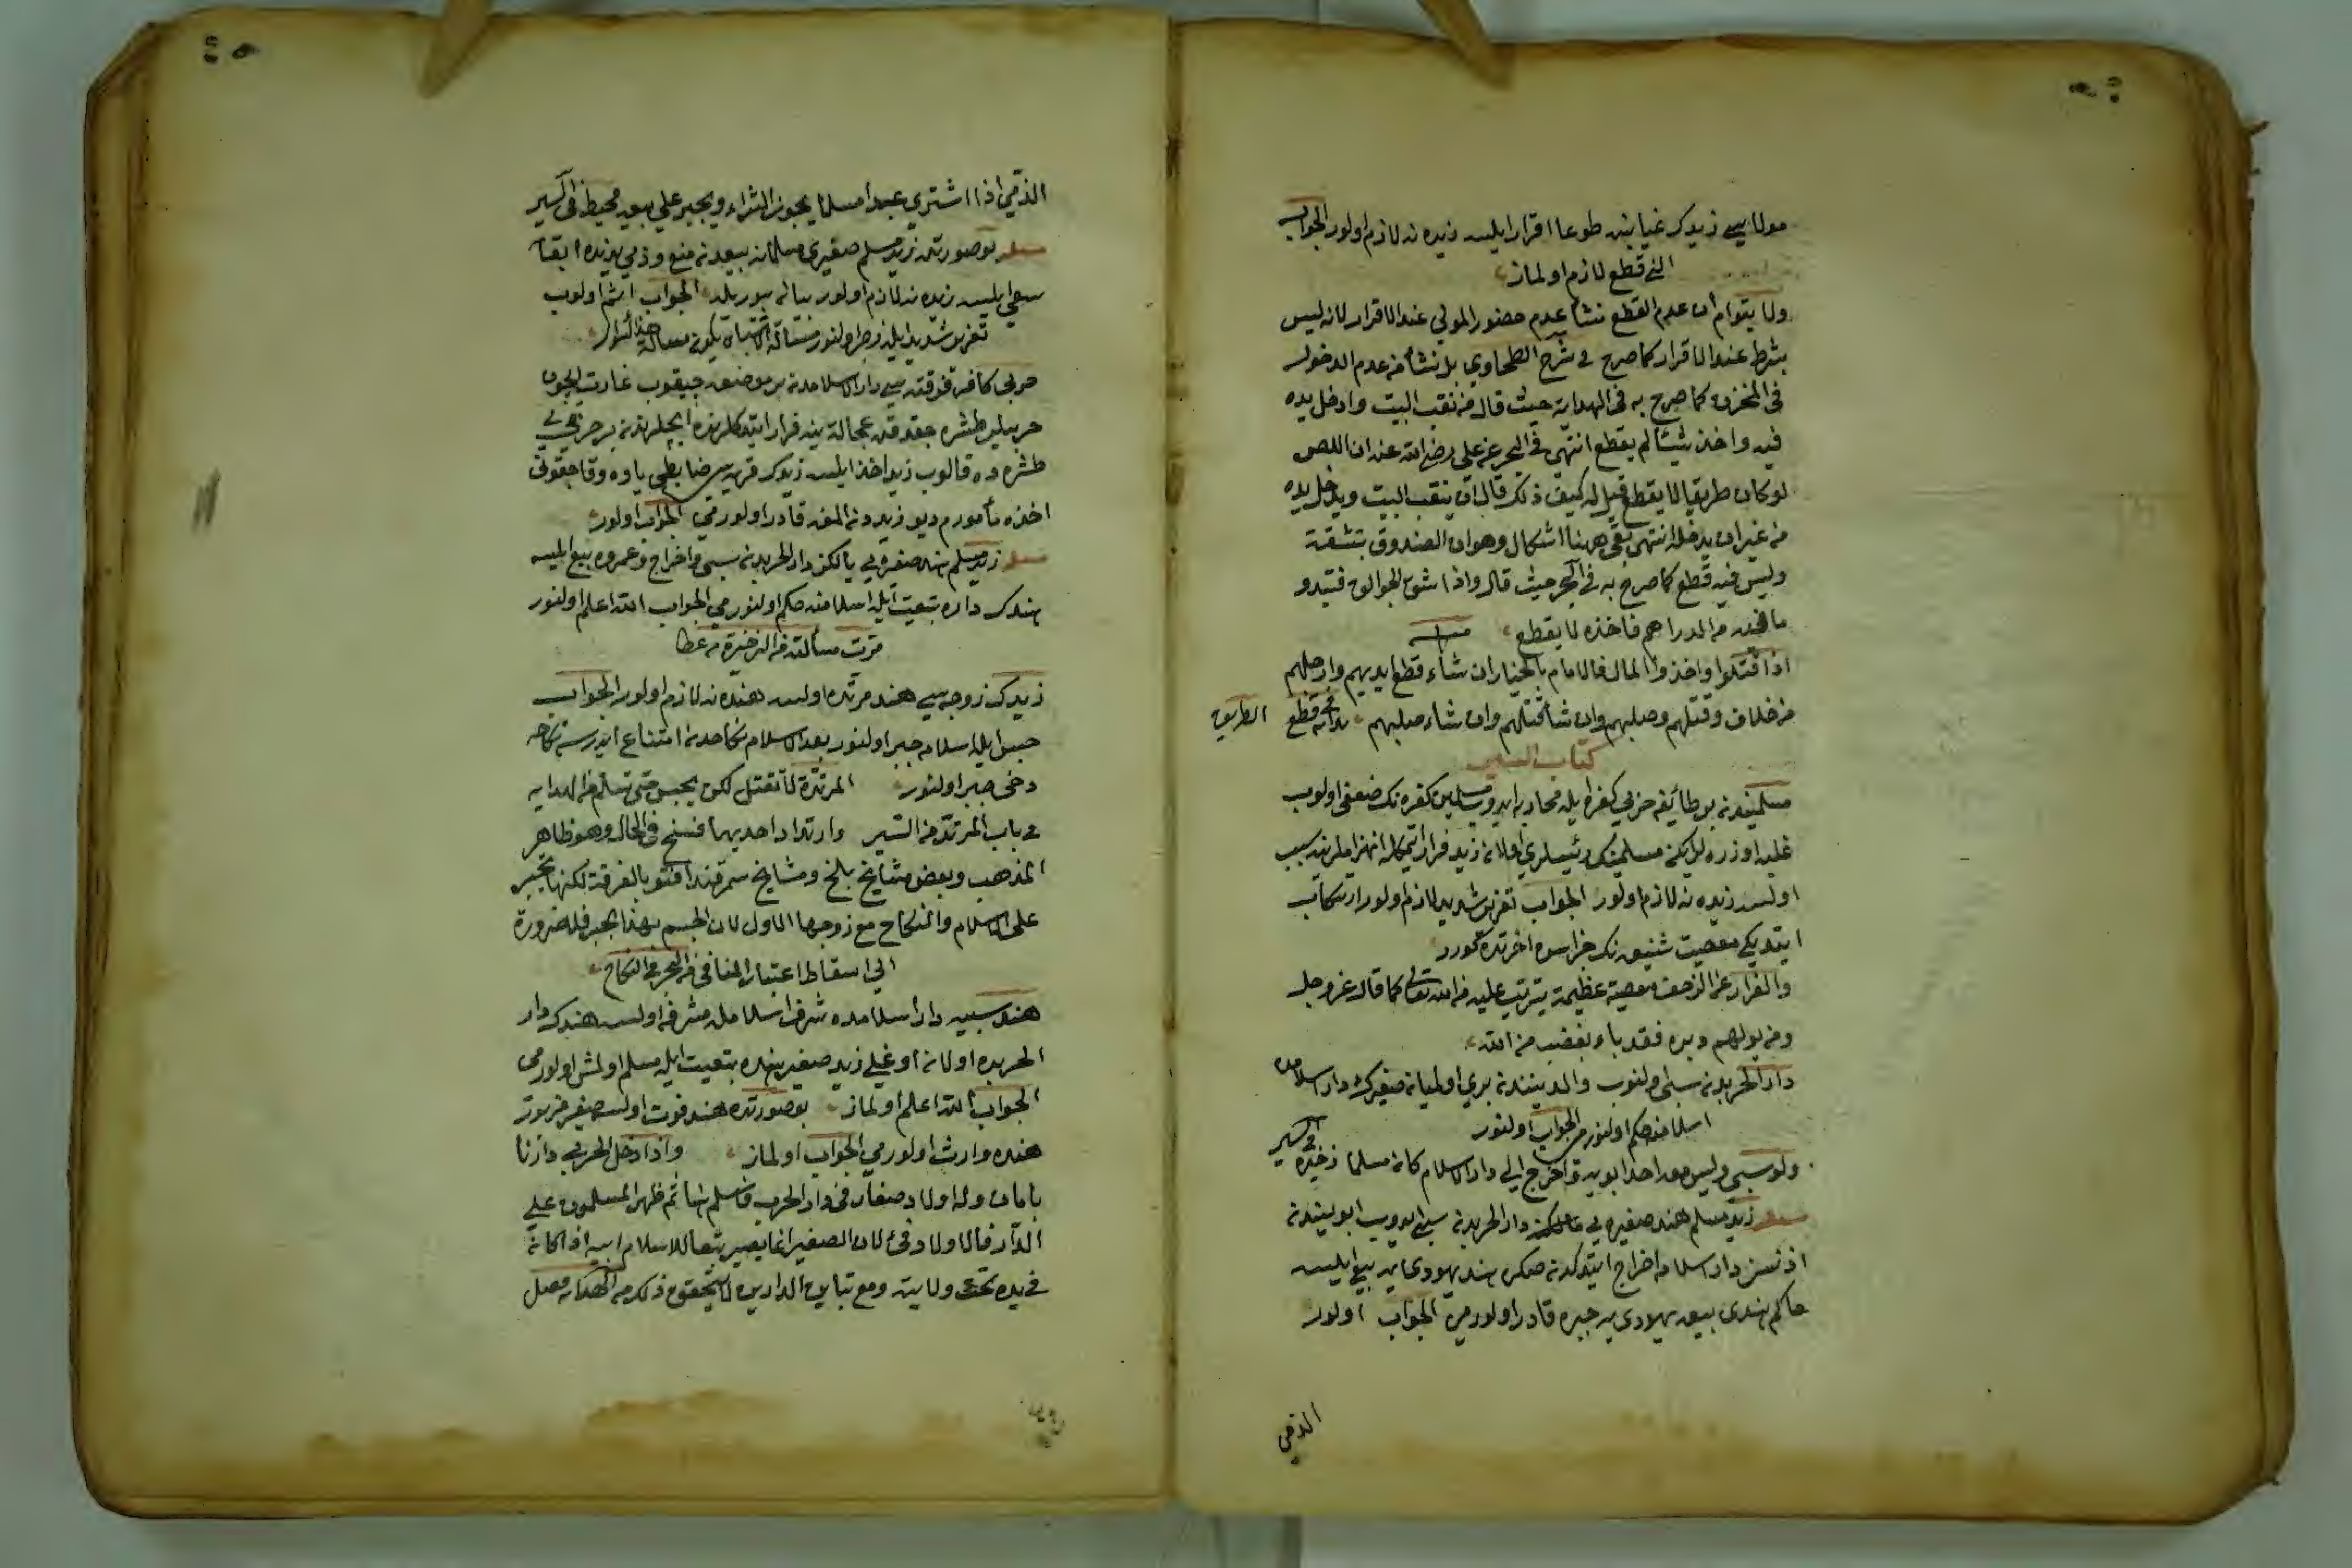 مولاسي زيدك غيابنده طوعا اقرار ايلسه زيده نه لازم اولور الجواب
قطع لازم اولماز
ولا يتوهم ان عدم القطع نشأ عدم حضور المولي عند الاقرار لانه ليس
بشرط عند الاقرار كما صرح في شرح الطحاوي بل نشأ من عدم الدخول
في المخزن كما صرح به في الهداية حيث قال من نقب البيت وادخل يده
فيه واخذ شيئا لم يقطع انتهى في البحر عن علي رضي الله عنه ان اللص
لو كان ظريفا لا يقطع قيل له كيف ذلك قال ان ينقب البيت ويدخل يده
من غير ان يدخله انتهى بقي ههنا اشكال وهو ان الصندوق بتشقه
وليس فيه قطع كما صرح به في البحر حيث قال واذا شق الجوالق
ما فيه من الدراهم فاخذه لا يقطع مسئله
اذا قتلوا واخذوا المال فالامام بالخيار ان شاء قطع ايديهم وارجلهم
من خلاف وقتلهم وصلبهم وان شاء قتلهم وان شاء صلبهم هدايه في قطع الطريق
كتاب السير
مسلميندن بر طائفه حربي كفره ايله محاربه ايدوب مسلمين كفره نك ضعفي اولوب
غلبه اوزره ايكن مسلمينك رئيسلري اولان زيد فرار ايتمكله انهزاملرينه سبب
اولسه زيده نه لازم اولور الجواب تعزير شديد لازم اولور ارتكاب
ايتديكي معصيت شنيعه نك جزاسي اخرتده كورر
والفرار عن الزحف معصية عظيمة يترتب عليه من الله تعالى كما قال عز وجل
ومن يولهم دبره فقد باء بغضب من الله
دار الحربدن سبي اولنوب والديندن بري اولميان صغيرك دار اسلامده
اسلامنه حكم اولنور مي الجواب اولنور
ولو سبي وليس معه احد ابويه واخرج الي دار الاسلام كان مسلما ذخيره في السير
مسئله زيد مسلم هند صغيره يي دار الحربدن سبي ايدوب ابويندن
اذنسز دار اسلامه اخراج ايتدكدن صكره هندي يهودي يه بيع ايلسه
حاكم هندي بيعه يهودي يي جبره قادر اولور مي الجواب اولور
الذمي
الذمي اذا اشتري عبدا مسلما يجوز الشراء ويجبر علي بيعه محيط في السير
مسئله بو صورتده زيد مسلم صغيري مسلمانه بيعدن منع وذمي يدنده ابقا
سعي ايلسه زيده نه لازم اولور بيان بيوريله الجواب اثم اولوب
حربي كافر دار الاسلامدن بر موضعه چيقوب غارت ايچون
طشره ده قالوب زيد اخذ ايلسه زيدك قريه سي ضابطي ياوه وقاچقوني
اخذه مأمورم ديو زيددن المغه قادر اولور مي الجواب اولور
مسئله زيد مسلم هند صغيره يي دار الحربدن سبي واخراج وعمروه بيع ايلسه
هندك داره تبعيت ايله اسلامنه حكم اولنور مي الجواب الله اعلم اولنور
مرت مسألته من الذخيرة
زيدك زوجه سي هند مرتده اولسه هنده نه لازم اولور الجواب
حبس ايله اسلامه جبر اولنور بعد الاسلام نكاحدن امتناع ايدرسه نكاحه
دخي جبر اولنور المرتدة لا تقتل لكن يحبس حتى تسلم من الهدايه
في باب المرتد من السير وارتداد احديهما فسخ في الحال وهو ظاهر
المذهب وبعض مشايخ بلخ ومشايخ سمرقند افتو بالفرقة لكنها تجبر
على الاسلام والنكاح مع زوجها الاول لان الحسم بهذا يجبر فلا ضرورة
الي اسقاط اعتبار المنافي من البحر في النكاح
هند سبيه دار اسلامده شرف اسلام ايله مشرفه اولسه هندك دار
الحربده اولان اوغلي زيد صغير هنده تبعيت ايله مسلم اولمش اولور مي
الجواب الله اعلم اولماز بو صورتده هند فوت اولسه صغير مزبور
هنده وارث اولور مي الجواب اولماز واذا دخل الحربي دارنا
بامان وله اولاد صغار في دار الحرب فاسلم هنا ثم ظهر المسلمون علي
الدار فالاولاد فئ لان الصغير انما يصير تبعا للاسلام ابيه اذا كان
في يده تحت ولايته ومع تباين الدارين لا يتحقق ذلك من الهدايه فصل